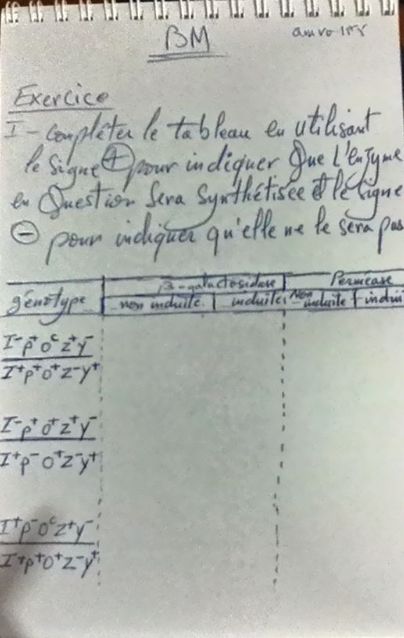 BM
Exercice
I - Compléter le tableau en utilisant
le signe + pour indiquer que l'enzyme
en question sera synthétisée et le signe
- pour indiquer qu'elle ne le sera pas
génotype β-galactosidase Perméase
non induite induite Non induite indui
I⁻P⁺O^cZ⁺Y⁻
I⁺P⁺O⁺Z⁻Y⁺
I⁻P⁺O⁺Z⁺Y⁻
I⁺P⁻O⁺Z⁻Y⁺
I⁺P⁻O^cZ⁺Y⁻
I⁺P⁺O⁺Z⁻Y⁺